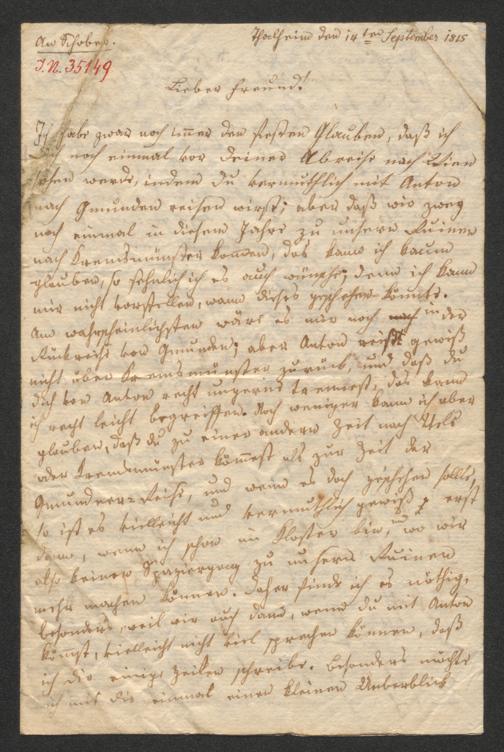 An Schober.
Thalheim den 14ten September 1815
I.N. 35149
Lieber Freund!
Ich habe zwar noch immer den festen Glauben, daß ich
noch einmal vor deiner Abreise nach Wien
sehen werde, indem du vermuthlich mit Anton
nach Gmunden reisen wirst; aber daß wir zwey
noch einmal in diesem Jahre zu unsern Ruinen
nach Kremsmünster kommen, das kann ich kaum
glauben, so sehnlich ich es auch wünsche; denn ich kann
mir nicht vorstellen, wann dieses geschehen könnte.
Am wahrscheinlichsten wäre es mir noch in der
Rückreise von Gmunden; aber Anton reist gewiß
nicht über Kremsmünster zurück, und daß du
dich von Anton recht ungern trennest, das kann
ich recht leicht begreiffen. Noch weniger kann ich aber
glauben, daß du zu einer andern Zeit nach
oder Kremsmünster kömmest als zur Zeit der
Gmundner-Reise, und wenn es doch geschehen sollte,
so ist es vielleicht und vermuthlich gewiß erst
dann, wenn ich schon im Kloster bin, wo wir
also keinen Spaziergang zu unsern Ruinen
mehr machen können. Daher finde ich es nöthig,
besonders weil wir auch dann, wenn du mit Anton
kömst, vielleicht nicht viel sprechen können, daß
ich dir einige Zeilen schreibe. Besonders möchte
ich mit dir einmal einen kleinen Ueberblick